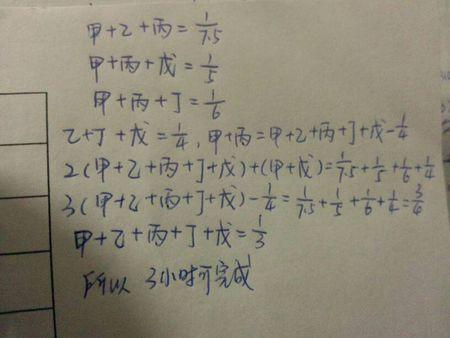 甲+乙+丙=1/7.5
甲+丙+戊=1/5
甲+丙+丁=1/6
乙+丁+戊=1/4,甲+丙=甲+乙+丙+丁+戊-1/4
2(甲+乙+丙+丁+戊)+(甲+戊)=1/7.5+1/5+1/6+1/4
3(甲+乙+丙+丁+戊)-1/4=1/7.5+1/5+1/6+1/4=3/4
甲+乙+丙+丁+戊=1/3
所以 3小时可完成